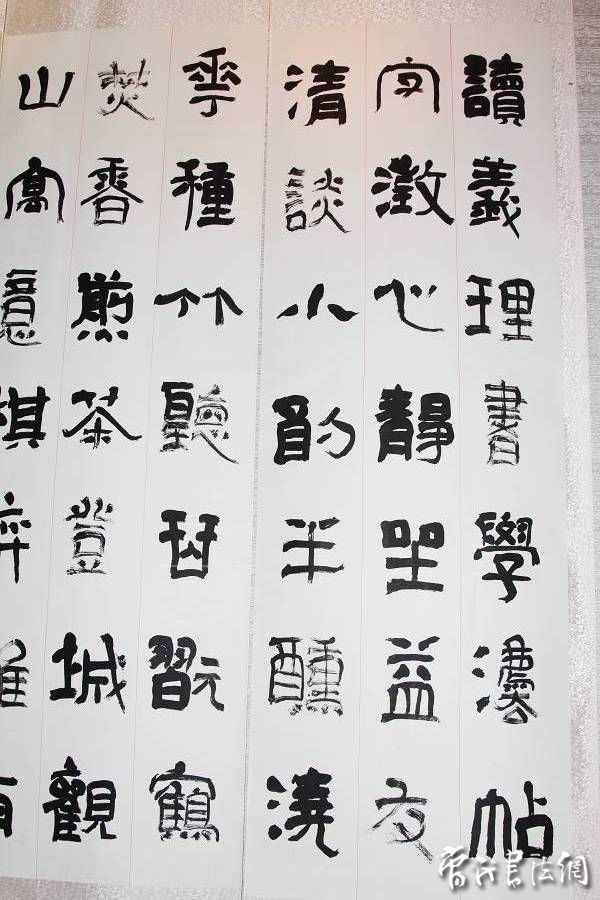 讀義理書學灋帖
字澂心靜坐益友
清談小酌半醺澆
花種竹聽琴翫鶴
焚香煎茶登城觀
山寓意棋弈雖有
書法網